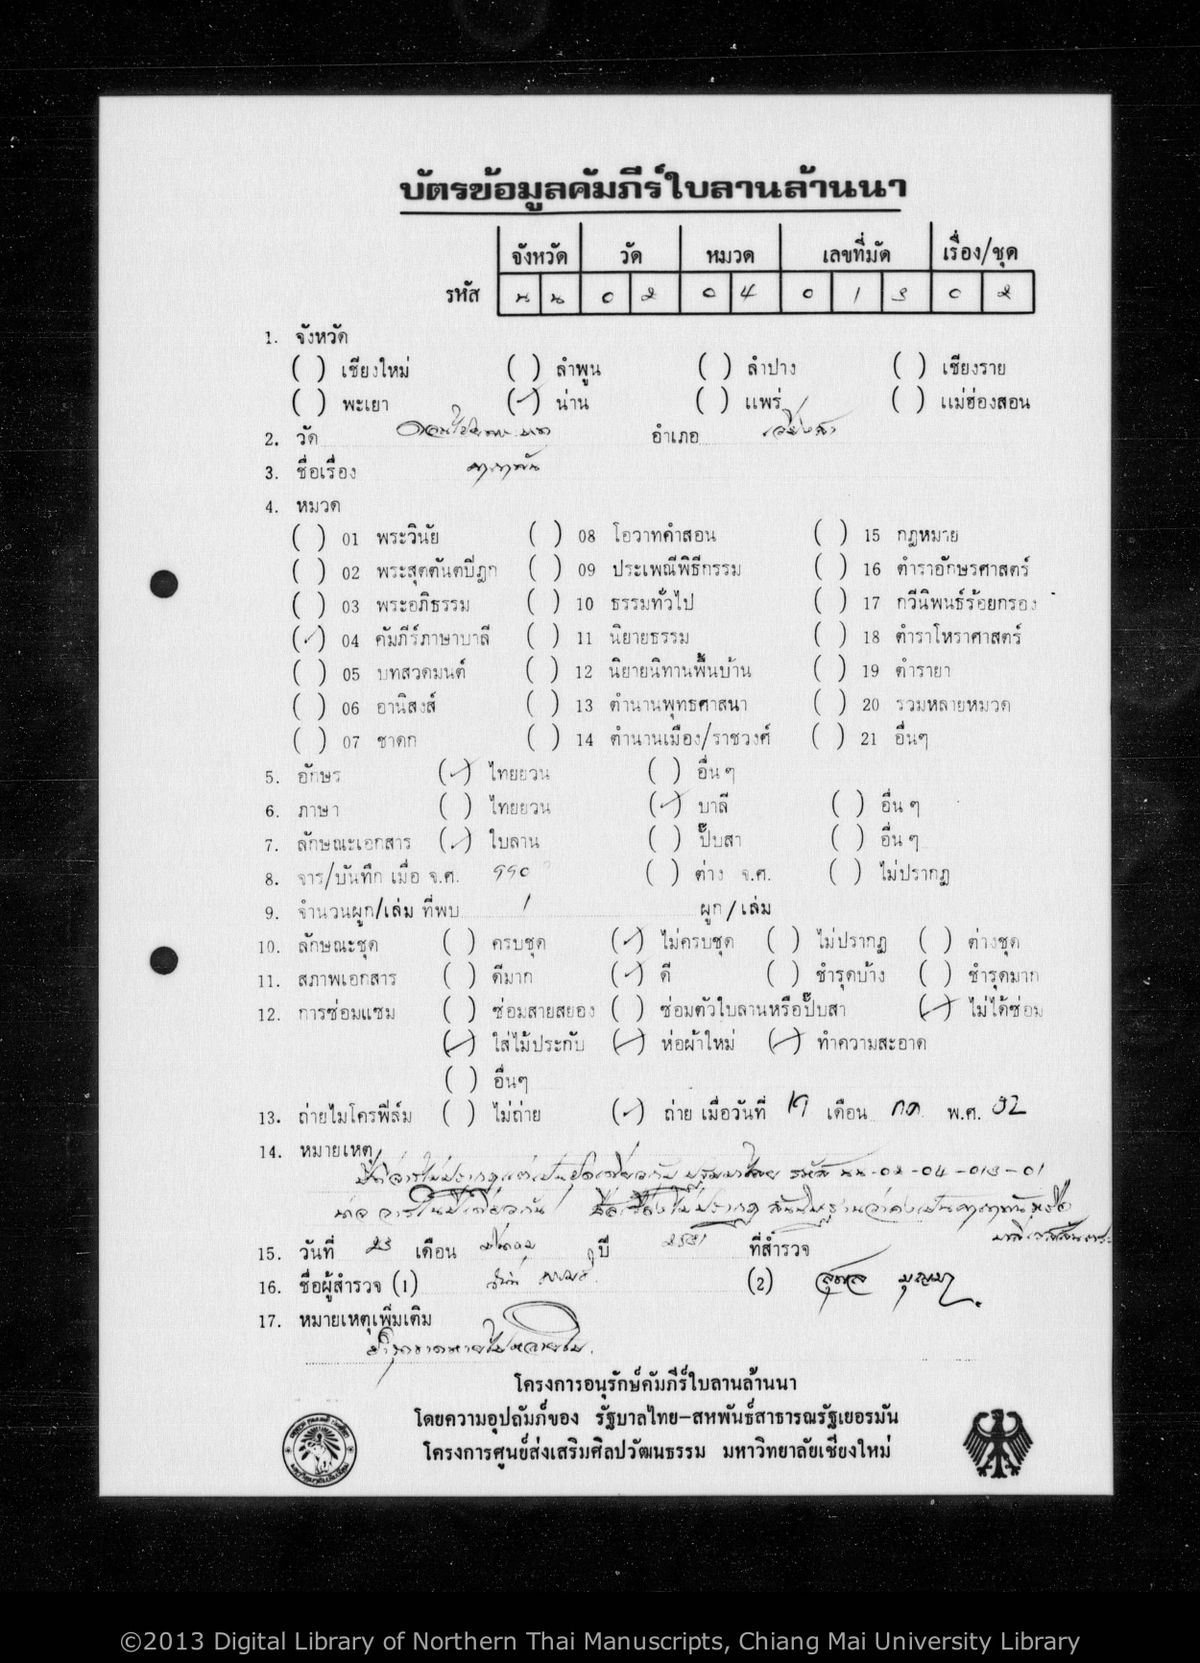 บัตรข้อมูลคัมภีร์ใบลานล้านนา
จังหวัด วัด หมวด เลขที่มัด เรื่อง/ชุด
รหัส น น 0 2 0 4 0 1 3 0 2
1. จังหวัด
( ) เชียงใหม่ ( ) ลำพูน ( ) ลำปาง ( ) เชียงราย
( ) พะเยา (✓) น่าน ( ) แพร่ ( ) แม่ฮ่องสอน
2. วัด อำเภอ เวียงสา
3. ชื่อเรื่อง
4. หมวด
( ) 01 พระวินัย ( ) 08 โอวาทคำสอน ( ) 15 กฎหมาย
( ) 02 พระสุตตันตปิฎก ( ) 09 ประเพณีพิธีกรรม ( ) 16 ตำราอักษรศาสตร์
( ) 03 พระอภิธรรม ( ) 10 ธรรมทั่วไป ( ) 17 กวีนิพนธ์ร้อยกรอง
(✓) 04 คัมภีร์ภาษาบาลี ( ) 11 นิยายธรรม ( ) 18 ตำราโหราศาสตร์
( ) 05 บทสวดมนต์ ( ) 12 นิยายนิทานพื้นบ้าน ( ) 19 ตำรายา
( ) 06 อานิสงส์ ( ) 13 ตำนานพุทธศาสนา ( ) 20 รวมหลายหมวด
( ) 07 ชาดก ( ) 14 ตำนานเมือง/ราชวงศ์ ( ) 21 อื่นๆ
5. อักษร (✓) ไทยยวน ( ) อื่น ๆ
6. ภาษา ( ) ไทยยวน (✓) บาลี ( ) อื่น ๆ
7. ลักษณะเอกสาร (✓) ใบลาน ( ) ปั๊บสา ( ) อื่น ๆ
8. จาร/บันทึก เมื่อ จ.ศ. ( ) ต่าง จ.ศ. ( ) ไม่ปรากฏ
9. จำนวนผูก/เล่ม ที่พบ 1 ผูก / เล่ม
10. ลักษณะชุด ( ) ครบชุด (✓) ไม่ครบชุด ( ) ไม่ปรากฏ ( ) ต่างชุด
11. สภาพเอกสาร ( ) ดีมาก (✓) ดี ( ) ชำรุดบ้าง ( ) ชำรุดมาก
12. การซ่อมแซม ( ) ซ่อมสายสยอง ( ) ซ่อมตัวใบลานหรือปั๊บสา (✓) ไม่ได้ซ่อม
(✓) ใส่ไม้ประกับ (✓) ห่อผ้าใหม่ (✓) ทำความสะอาด
( ) อื่นๆ
13. ถ่ายไมโครฟิล์ม ( ) ไม่ถ่าย (✓) ถ่าย เมื่อวันที่ 19 เดือน กค. พ.ศ. 32
14. หมายเหตุ
รหัส นน-02-04-013-01
15. วันที่ 23 เดือน ปี 2531 ที่สำรวจ
16. ชื่อผู้สำรวจ (1) (2)
17. หมายเหตุเพิ่มเติม
โครงการอนุรักษ์คัมภีร์ใบลานล้านนา
โดยความอุปถัมภ์ของ รัฐบาลไทย-สหพันธ์สาธารณรัฐเยอรมัน
โครงการศูนย์ส่งเสริมศิลปวัฒนธรรม มหาวิทยาลัยเชียงใหม่
©2013 Digital Library of Northern Thai Manuscripts, Chiang Mai University Library